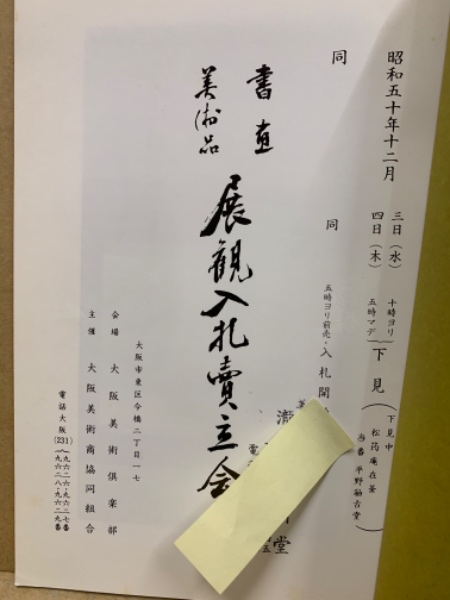 昭和五十年十二月
三日（水）
四日（木）
十時ヨリ
五時マデ
下見
下見中
松筠庵在釜
当番 平野
古堂
同
同
五時ヨリ前売・入札開
書画
美術品
展観入札賣立会
大阪市東区今橋二丁目一七
会場 大阪美術倶楽部
主催 大阪美術商協同組合
電話大阪(231)
九六二六・九六二七番
九六二八・九六二九番
堂